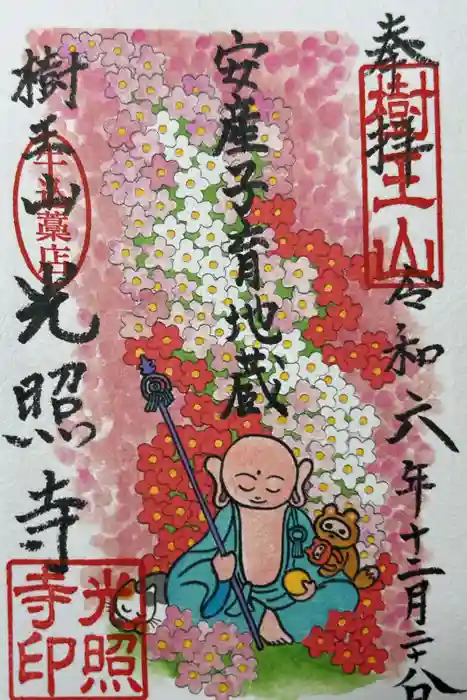 奉拝
樹王山
令和六年十二月二十八日
安産子育地蔵
樹王山光照寺
牛込藁店
光照寺印